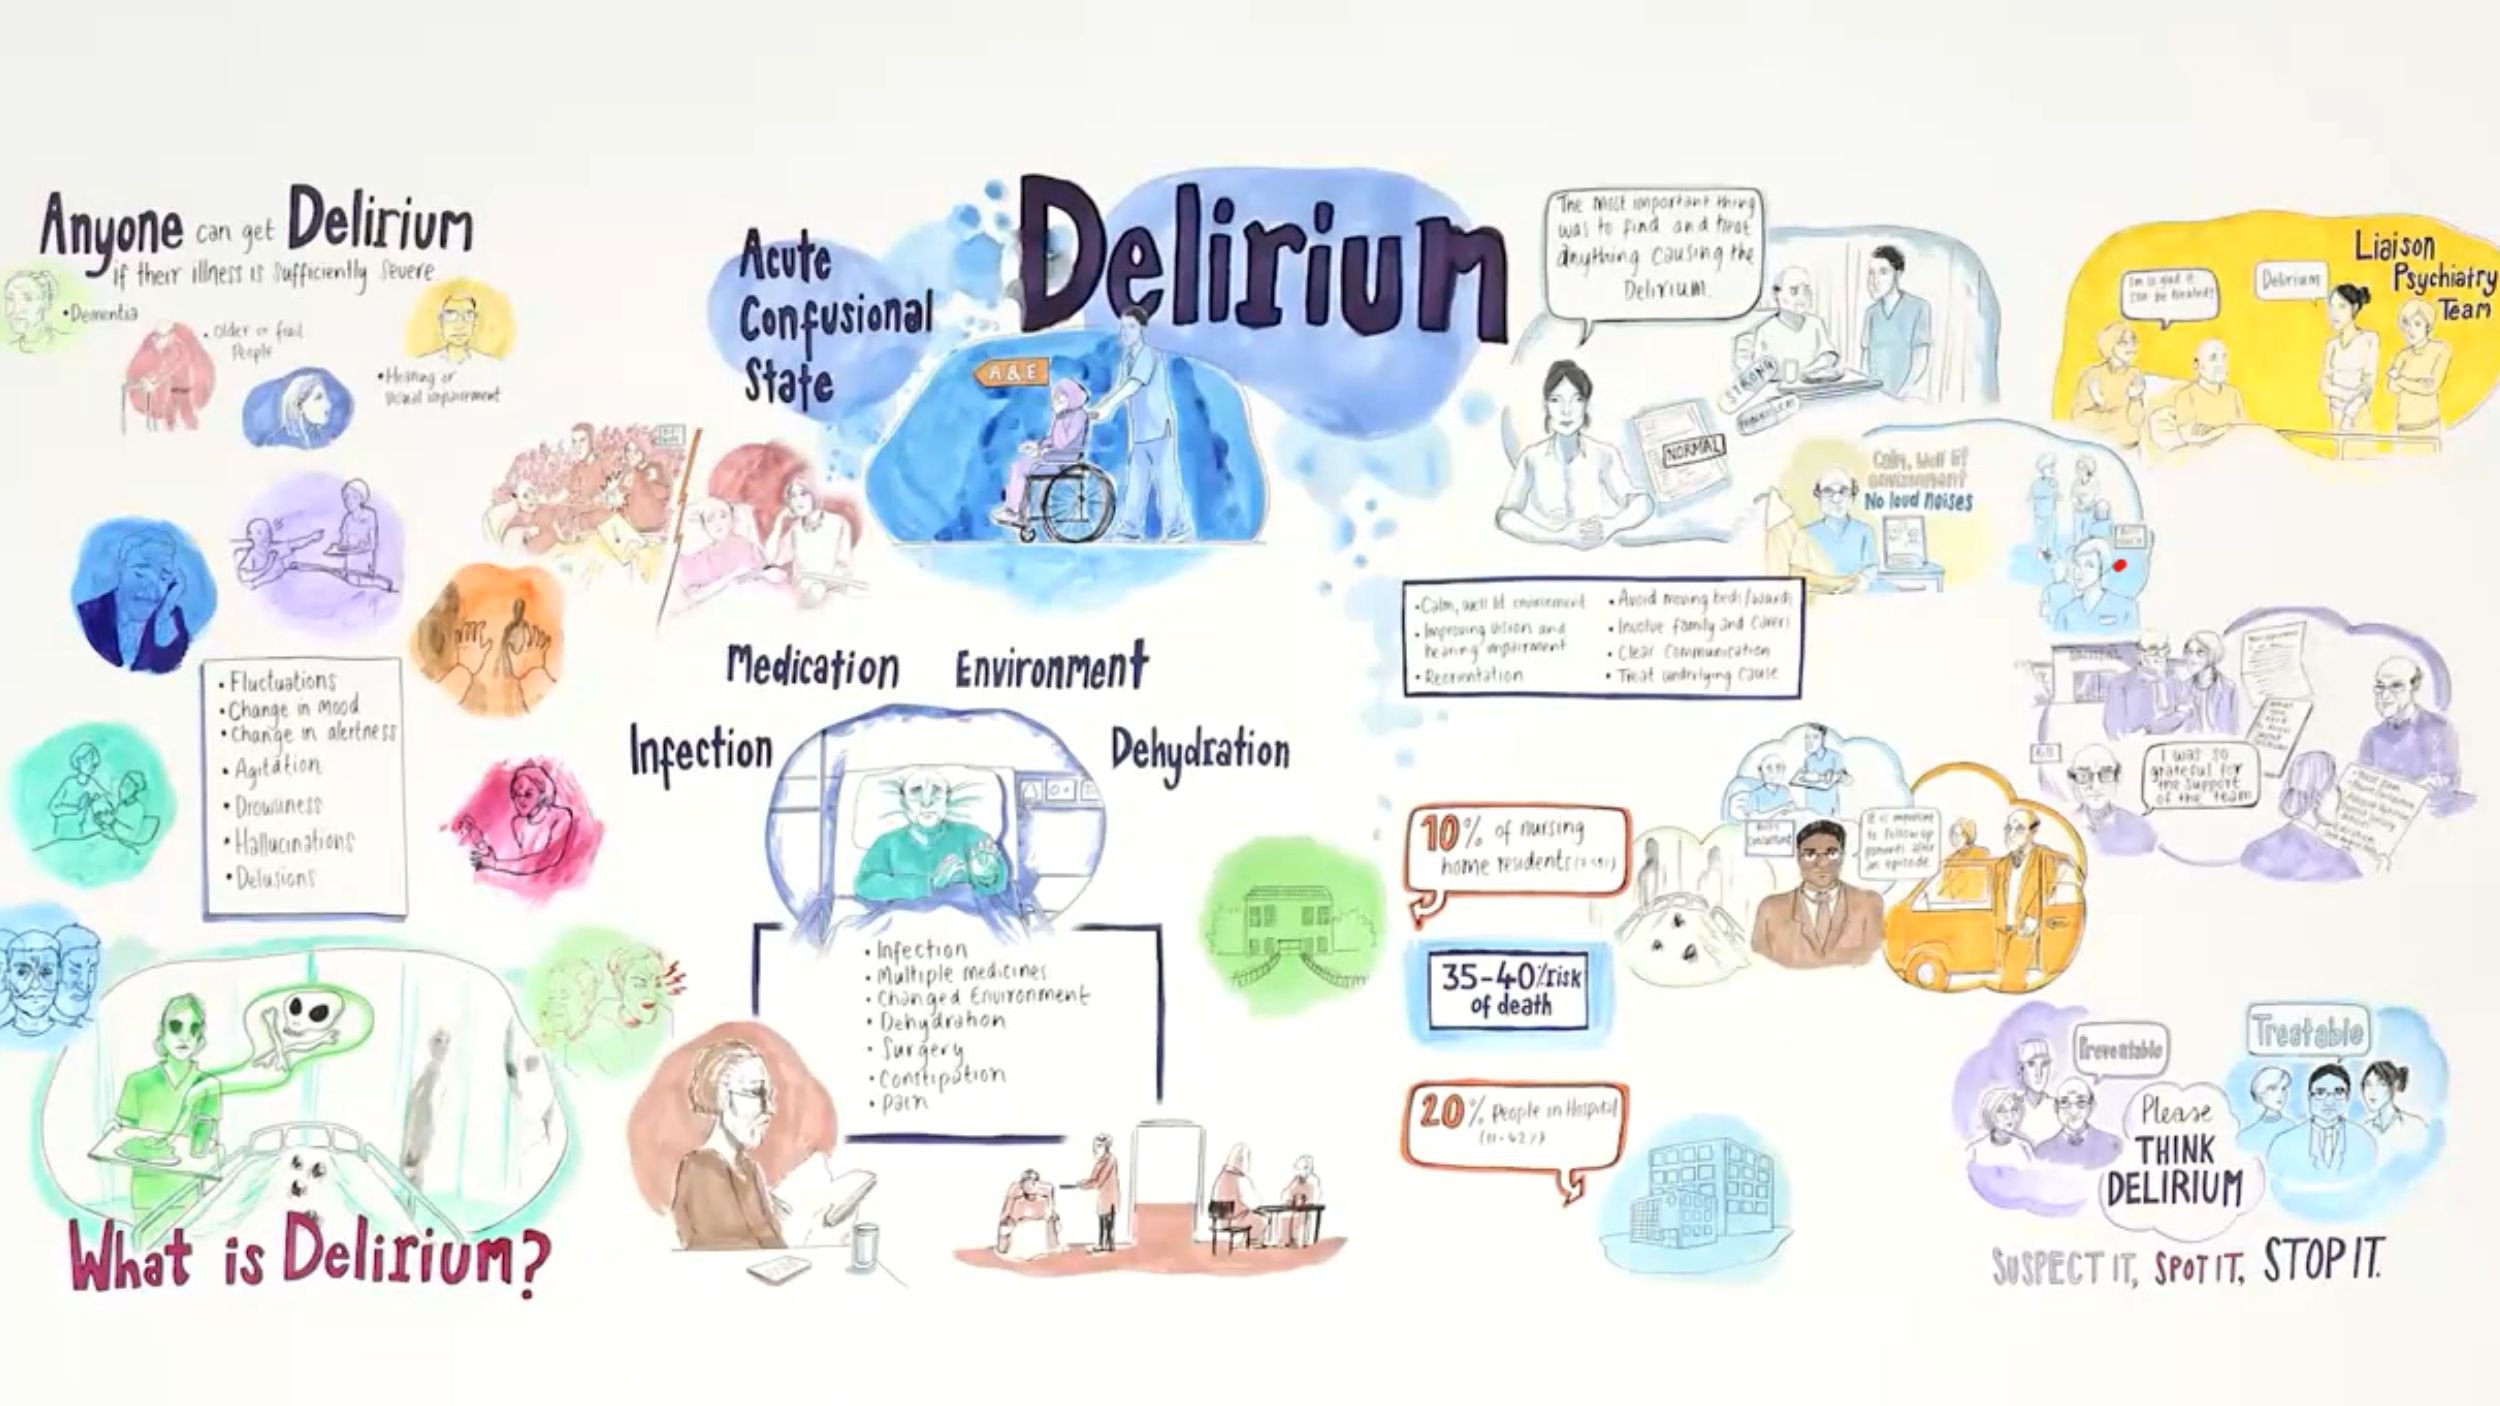 Anyone can get Delirium
If their illness is sufficiently severe
• Dementia
• Older or frail
People
• Hearing or
visual impairment
• Fluctuations
• Change in mood
• Change in alertness
• Agitation
• Drowsiness
• Hallucinations
• Delusions
What is Delirium?
Acute
Confusional
State
Delirium
A & E
Medication
Environment
Infection
Dehydration
• Infection
• Multiple medicines
• Changed Environment
• Dehydration
• Surgery
• Constipation
• Pain
The most important thing
was to find and treat
anything causing the
Delirium.
STRONG
NORMAL
Calm, well lit
environment
No loud noises
• Calm, well lit environment
• Improving vision and
hearing impairment
• Reorientation
• Avoid moving beds/wards
• Involve family and carers
• Clear Communication
• Treat underlying cause
10% of nursing
home residents
35-40% risk
of death
20% People in Hospital
Liaison
Psychiatry
Team
I'm so glad it
can be treated!
Delirium
I was so
grateful for
the support
of the team
It is important
to follow up
patients after
an episode
Preventable
Treatable
Please
THINK
DELIRIUM
SUSPECT IT, SPOT IT, STOP IT.